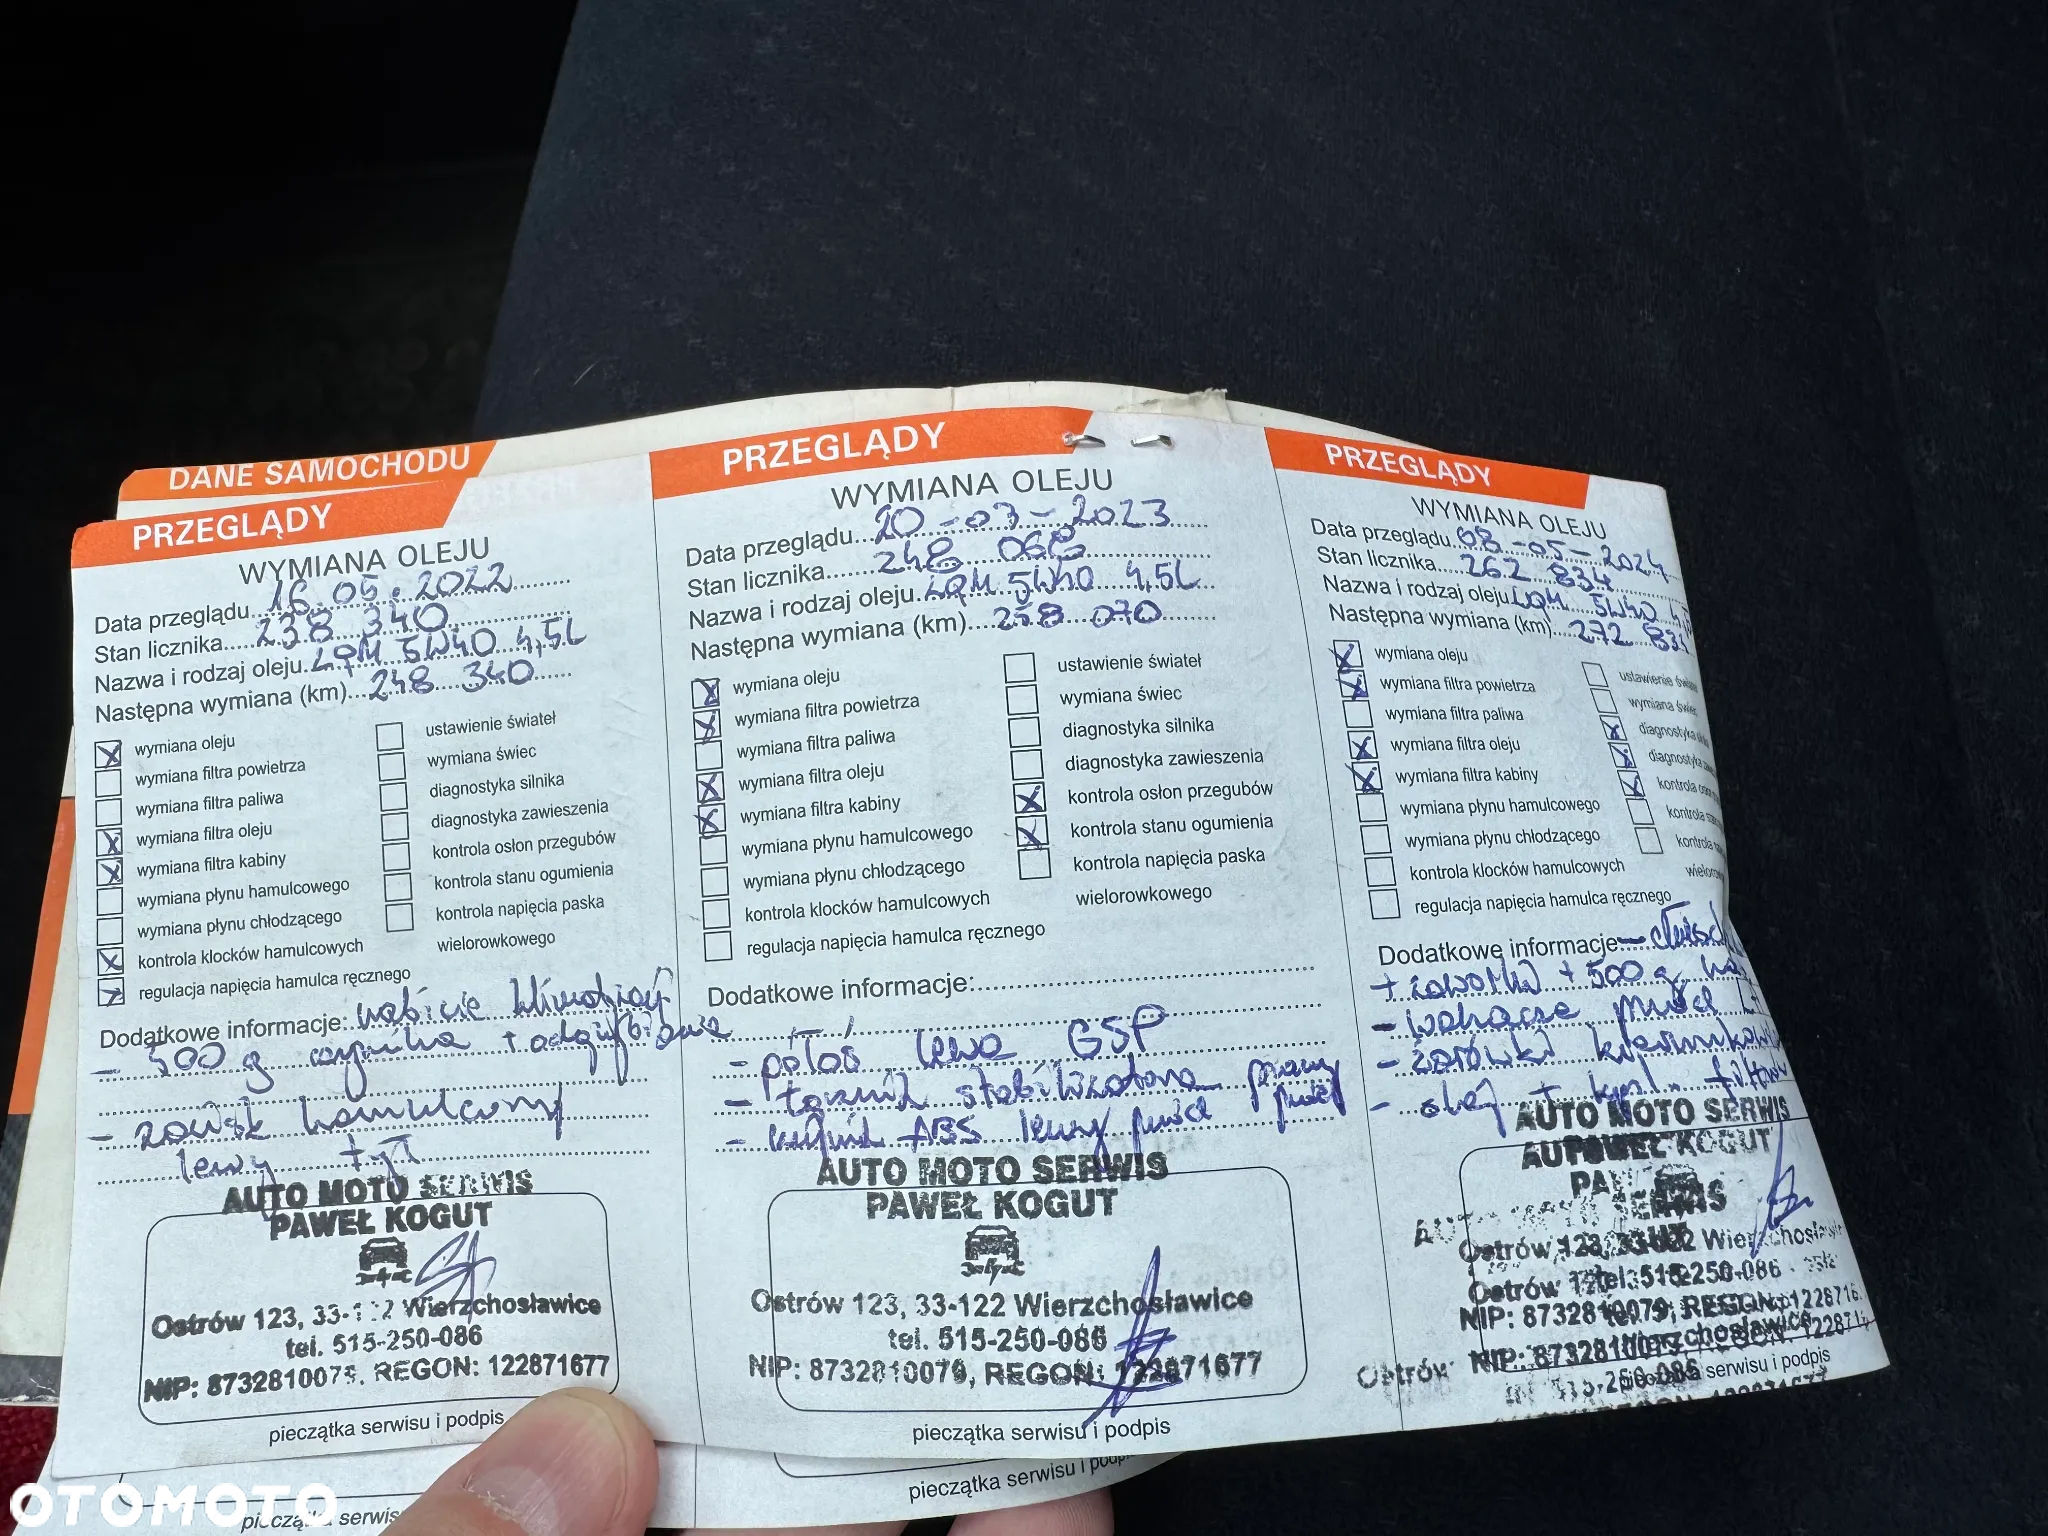 DANE SAMOCHODU
PRZEGLĄDY
WYMIANA OLEJU
Data przeglądu 16.05.2022
Stan licznika 238 340
Nazwa i rodzaj oleju LQM 5W40 4,5L
Następna wymiana (km) 248 340
wymiana oleju
wymiana filtra powietrza
wymiana filtra paliwa
wymiana filtra oleju
wymiana filtra kabiny
wymiana płynu hamulcowego
wymiana płynu chłodzącego
kontrola klocków hamulcowych
regulacja napięcia hamulca ręcznego
ustawienie świateł
wymiana świec
diagnostyka silnika
diagnostyka zawieszenia
kontrola osłon przegubów
kontrola stanu ogumienia
kontrola napięcia paska
wielorowkowego
Dodatkowe informacje: nabicie klimatyzacji
- 500 g czynnika + odgrzybianie
- zacisk hamulcowy
lewy tył
AUTO MOTO SERWIS
PAWEŁ KOGUT
Ostrów 123, 33-122 Wierzchosławice
tel. 515-250-086
NIP: 8732810079, REGON: 122871677
pieczątka serwisu i podpis
PRZEGLĄDY
WYMIANA OLEJU
Data przeglądu 20-03-2023
Stan licznika 248 068
Nazwa i rodzaj oleju LQM 5W40 4,5L
Następna wymiana (km) 258 070
wymiana oleju
wymiana filtra powietrza
wymiana filtra paliwa
wymiana filtra oleju
wymiana filtra kabiny
wymiana płynu hamulcowego
wymiana płynu chłodzącego
kontrola klocków hamulcowych
regulacja napięcia hamulca ręcznego
ustawienie świateł
wymiana świec
diagnostyka silnika
diagnostyka zawieszenia
kontrola osłon przegubów
kontrola stanu ogumienia
kontrola napięcia paska
wielorowkowego
Dodatkowe informacje:
- półoś lewa GSP
- łącznik stabilizatora prawy przód
- czujnik ABS lewy przód
AUTO MOTO SERWIS
PAWEŁ KOGUT
Ostrów 123, 33-122 Wierzchosławice
tel. 515-250-086
NIP: 8732810079, REGON: 122871677
pieczątka serwisu i podpis
pieczątka serwisu i podpis
PRZEGLĄDY
WYMIANA OLEJU
Data przeglądu 08-05-2024
Stan licznika 262 834
Nazwa i rodzaj oleju LQM 5W40
Następna wymiana (km) 272 834
wymiana oleju
wymiana filtra powietrza
wymiana filtra paliwa
wymiana filtra oleju
wymiana filtra kabiny
wymiana płynu hamulcowego
wymiana płynu chłodzącego
kontrola klocków hamulcowych
regulacja napięcia hamulca ręcznego
ustawienie
wymiana świec
diagnostyka
diagnostyka
kontrola
kontrola
kontrola
Dodatkowe informacje
+ zaworki + 500 g
- wahacze przód
- żarówki
- olej + kpl. filtrów
AUTO MOTO SERWIS
PAWEŁ KOGUT
Ostrów 123, 33-122
tel. 515-250-086
NIP: 8732810079, REGON:
serwisu i podpis
pieczątka serwis
OTOMOTO